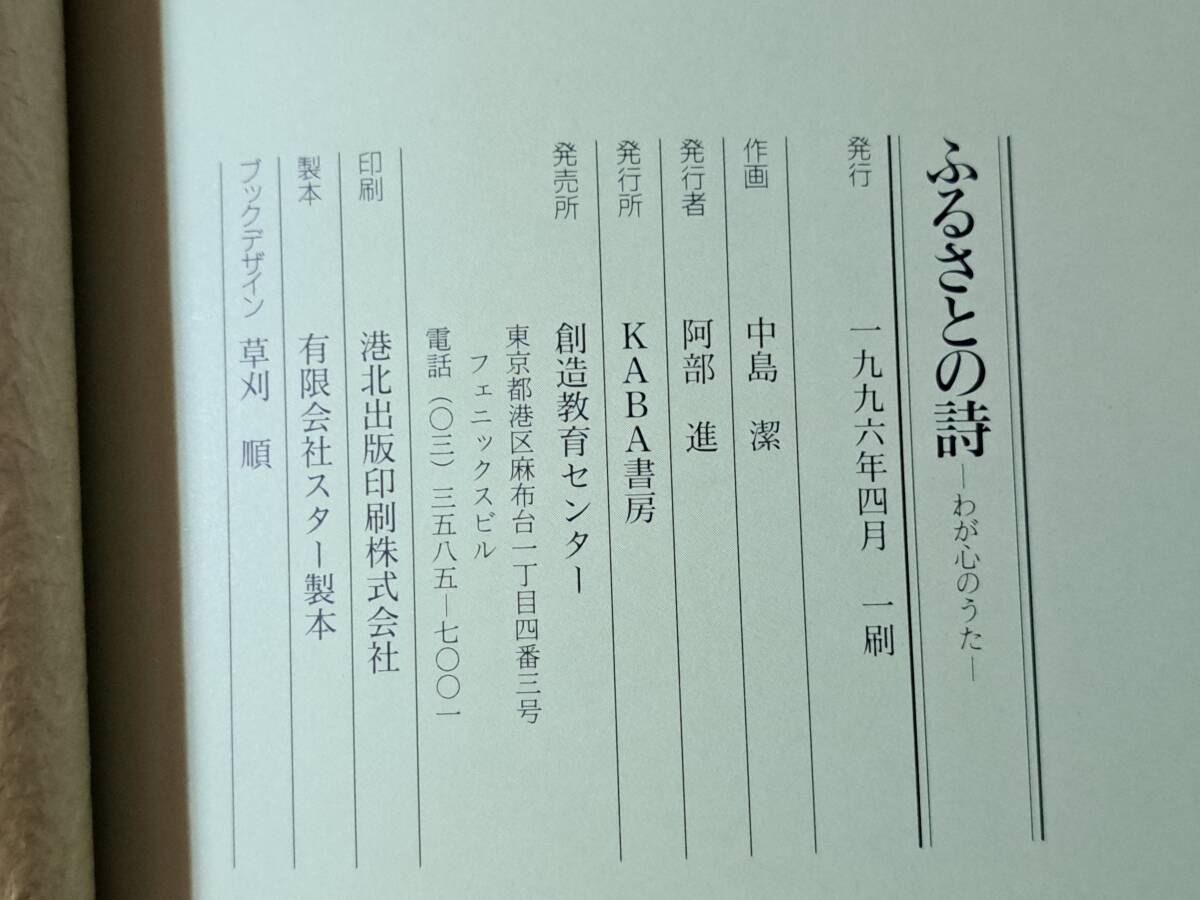 ふるさとの詩―わが心のうた―
発行 一九九六年四月 一刷
作画 中島 潔
発行者 阿部 進
発行所 KABA書房
発売所 創造教育センター
東京都港区麻布台一丁目四番三号
フェニックスビル
電話(〇三)三五八五―七〇〇一
印刷 港北出版印刷株式会社
製本 有限会社スター製本
ブックデザイン 草刈 順